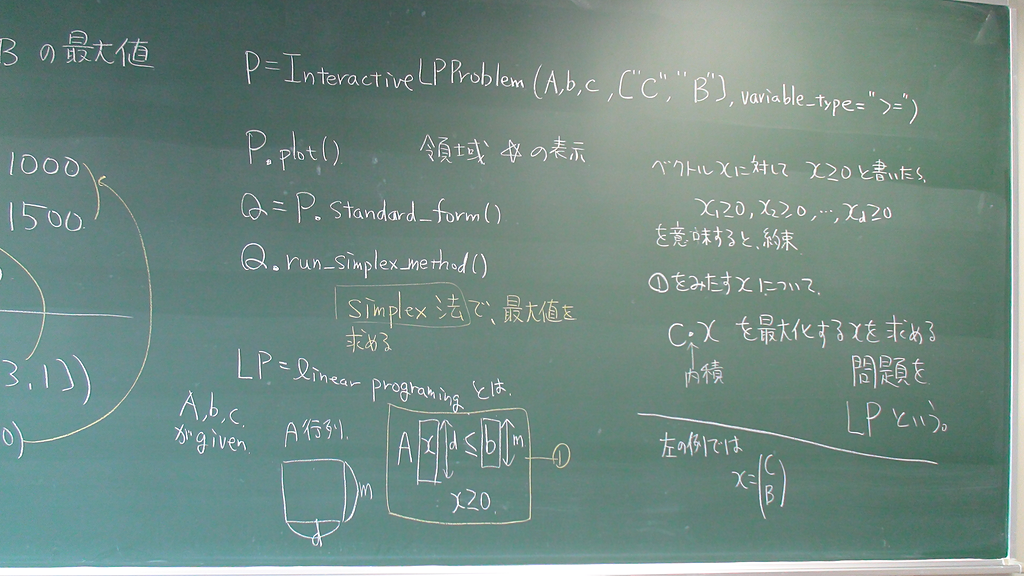 B の最大値
1000
1500
3,1))
0)
P=InteractiveLPProblem(A,b,c,["C","B"],variable_type=">=")
P.plot()
領域の表示
Q=P.standard_form()
Q.run_simplex_method()
Simplex法で、最大値を
求める
LP=linear programingとは.
A,b,c.
がgiven.
A行列.
m
d
A x d ≤ b m
x≥0.
①
ベクトルxに対して x≥0と書いたら、
x₁≥0, x₂≥0, ..., x_d≥0
を意味すると、約束
①をみたすxについて、
C・x を最大化するxを求める
内積
問題を
LPという。
左の例では
x=(C
B)